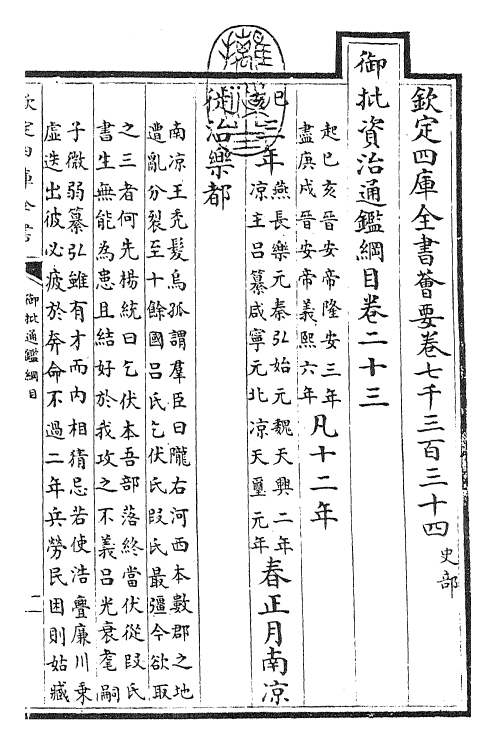 欽定四庫全書薈要卷七千三百三十四 史部
御批資治通鑑綱目卷二十三
起己亥晉安帝隆安三年
盡庚戌晉安帝義熙六年
凡十二年
己亥 三年
燕長樂元秦弘始元魏天興二年
凉主吕纂咸寧元北凉天璽元年
春正月南凉
徙治樂都
南凉王秃髮烏孤謂羣臣曰隴右河西本數郡之地
遭亂分裂至十餘國吕氏乞伏氏段氏最彊今欲取
之三者何先楊統曰乞伏本吾部落終當伏從段氏
書生無能為患且結好於我攻之不義吕光衰耄嗣
子微弱纂弘雖有才而内相猜忌若使浩亹廉川乗
虚迭出彼必疲於奔命不過二年兵勞民困則姑臧
欽定四庫全書
御批通鑑綱目
二